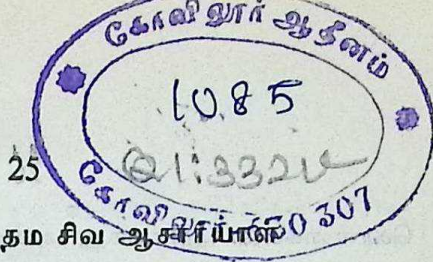 கோவிலூர் ஆதீனம்
1085
25
கோவிலூர் 630 307
தம சிவ ஆசாரியாள்